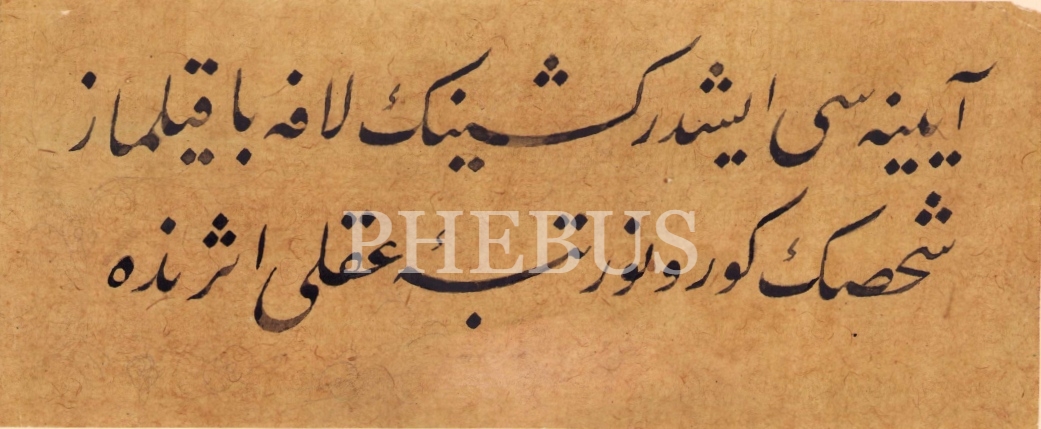 آیینه سی ایشدر کشینك لافه باقیلماز
شخصك کورونور رتبۀ عقلی اثرنده
PHEBUS